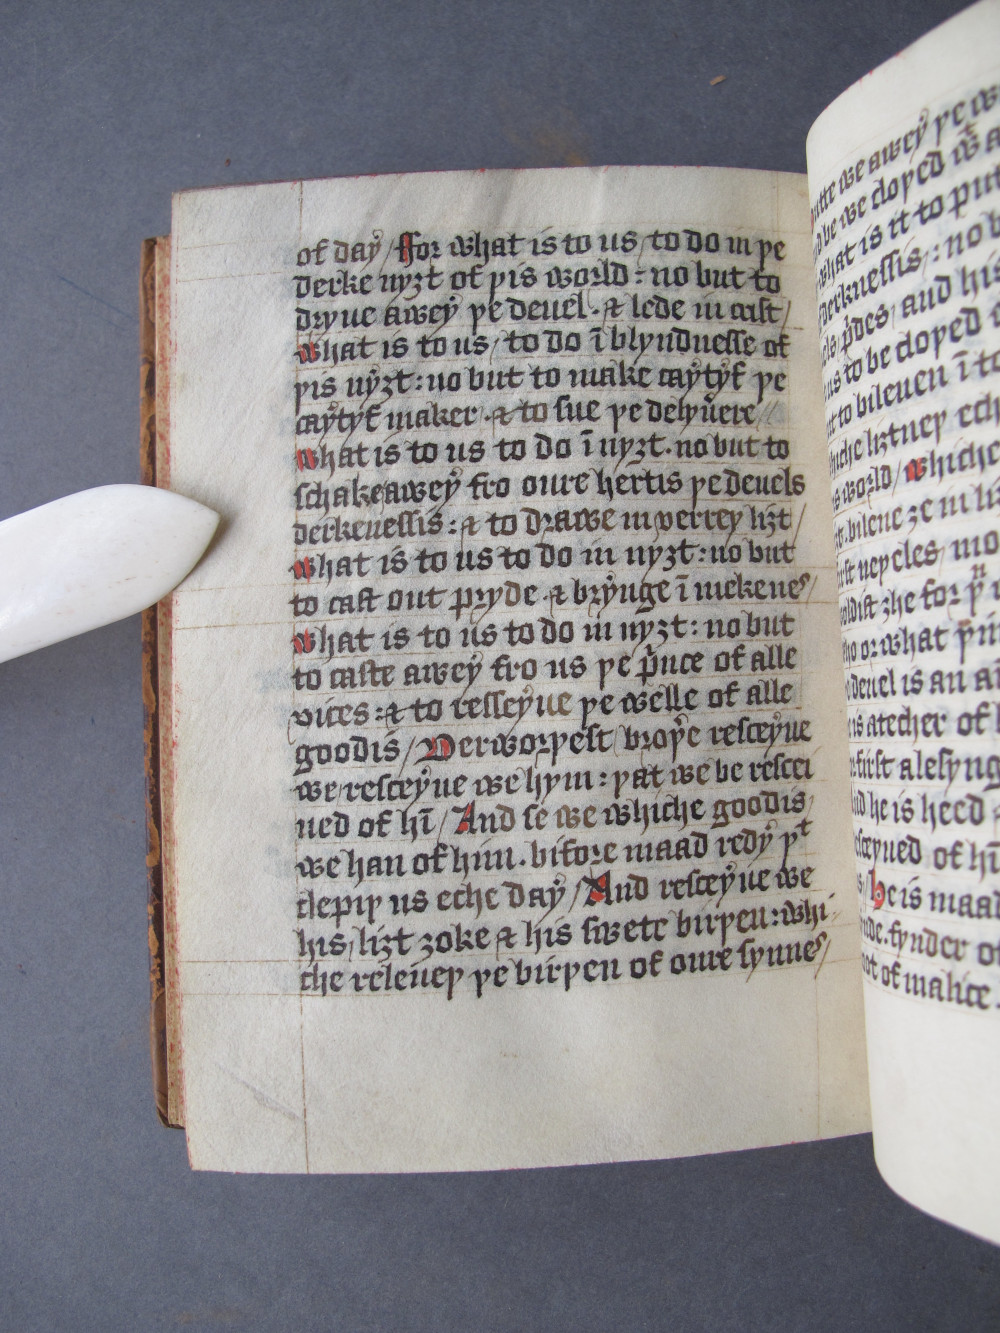 of daẏ / For what is to us / to do in þe
derke nyȝt of þis world : no but to
dryue aweẏ þe deuel . & lede in crist /
What is to us / to do ī blyndnesse of
þis nẏȝt : no but to make caẏtẏf þe
caẏtẏf maker . & to sue þe delyu̾ere //
What is to us to do ī nyȝt . no but to
schake aweẏ fro oure hertis þe deuels
derkenessis : & to drawe in verrey liȝt /
What is to us to do in nyȝt : no but
to cast out pryde . & brẏnge ī mekenes /
What is to us to do in nyȝt : no but
to caste aweẏ fro us þe p̄nce of alle
vices : & to resseẏue þe welle of alle
goodis / Derworþest broþ̾e resceẏue
we / resceẏue we hym : þat we be rescei
ued of hī / And se we whiche goodis /
we han of him . bifore maad redẏ þᵗ
clepiþ us eche daẏ / And resceẏue we
his / liȝt ȝoke & his swete birþen : whi-
che releueþ þe birþen of oure synnes /
aweẏ þe
we cloþed
what is it to put
derknessis : no b
and his
us to be cloþed
to bileuen ī to
world / Whiche
bileue ȝe in
þis atecher of
first alesyng
and he is heed
of hī
He is maad
fynder
not of malice .